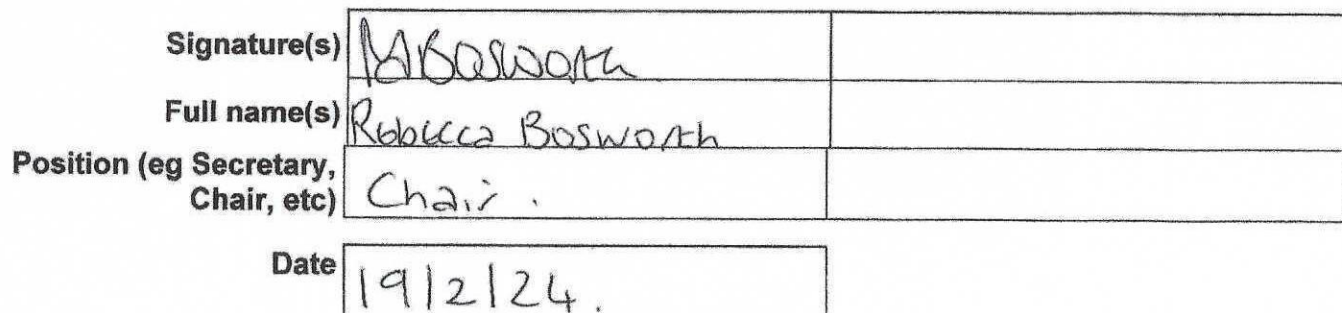 Signature(s) RABosworth
Full name(s) Rebecca Bosworth
Position (eg Secretary,
Chair, etc) Chair.
Date 19/2/24.